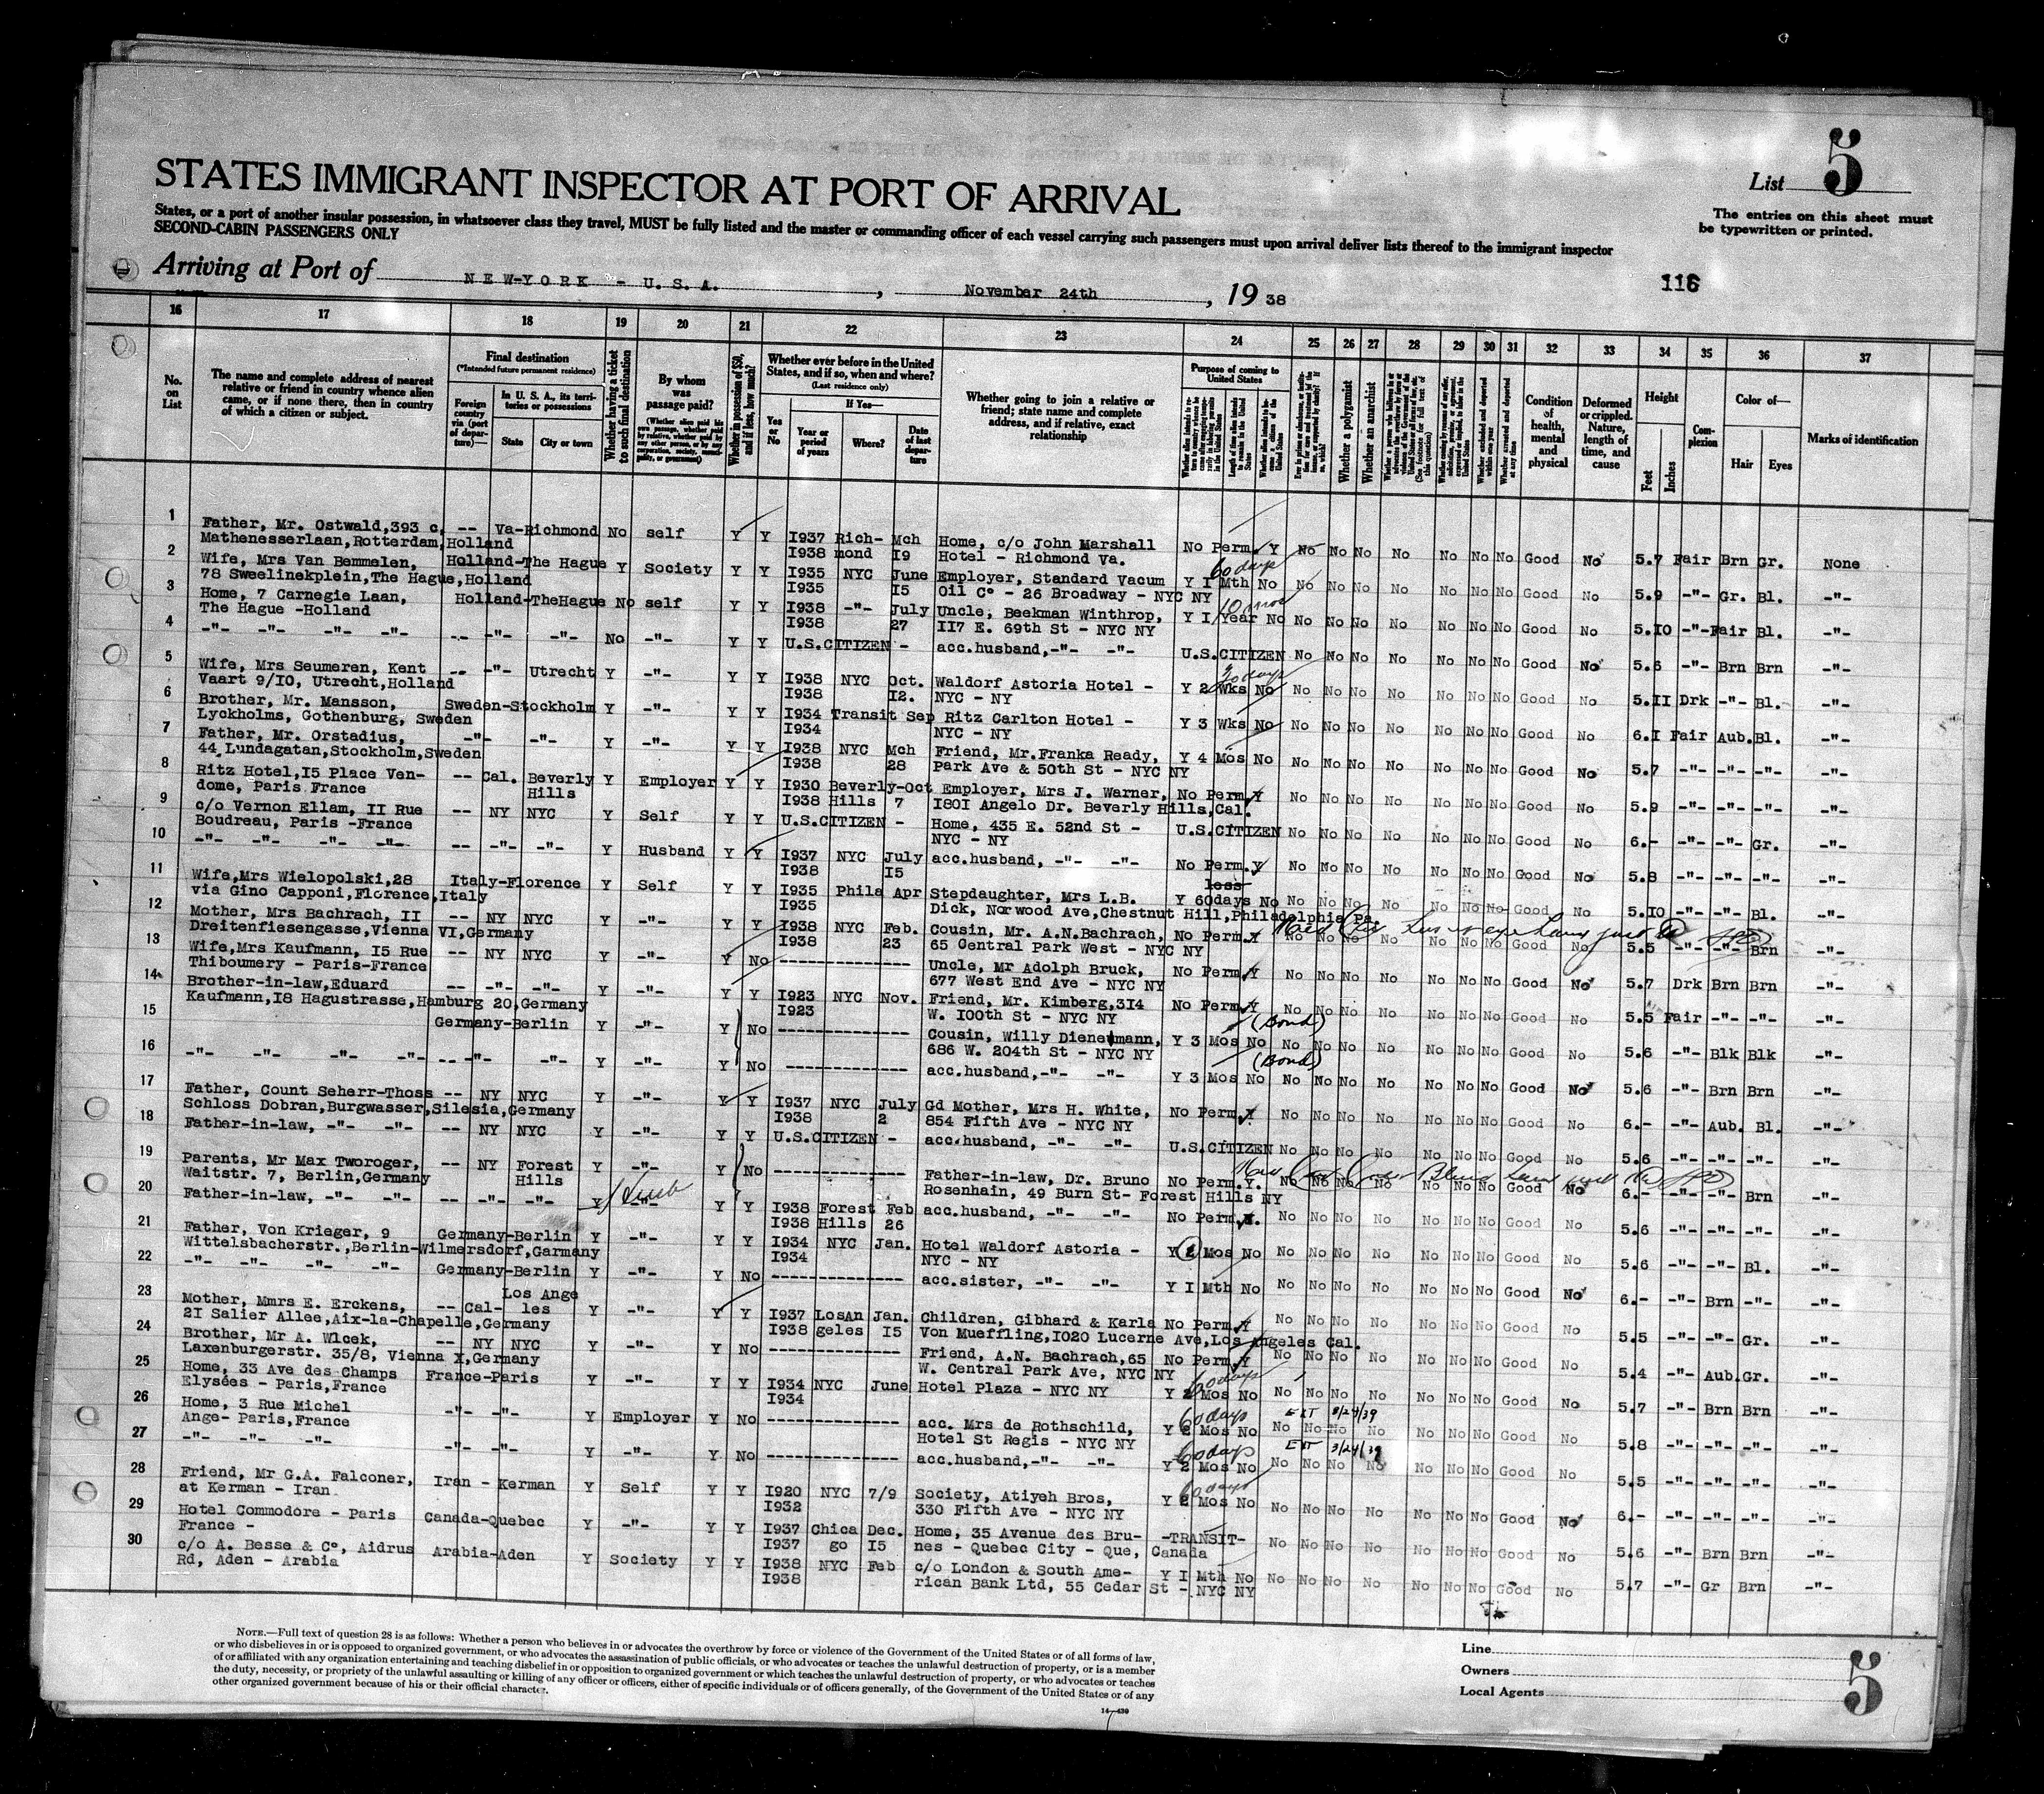 5
STATES IMMIGRANT INSPECTOR AT PORT OF ARRIVAL
List
The entries on this sheet must
be typewritten or printed.
States, or a port of another insular possession, in whatsoever class they travel, MUST be fully listed and the master or commanding officer of each vessel carrying such passengers must upon arrival deliver lists thereof to the immigrant inspector
SECOND-CABIN PASSENGERS ONLY
Arriving at Port of NEW-YORK - U.S.A. , November 24th , 19 38
116
16 17 18 19 20 21 22 23 24 25 26 27 28 29 30 31 32 33 34 35 36 37
No. on List
The name and complete address of nearest relative or friend in country whence alien came, or if none there, then in country of which a citizen or subject.
Final destination
(*Intended future permanent residence)
Foreign country via (port of departure)—
In U. S. A., its territories or possessions
State
City or town
Whether having a ticket to such final destination
By whom was passage paid?
(Whether alien paid his own passage, whether paid by relative, whether paid by any other person, or by any corporation, society, municipality, or government)
Whether in possession of $50, and if less, how much?
Whether ever before in the United States, and if so, when and where?
(Last residence only)
Yes or No
If Yes—
Year or period of years
Where?
Date of last departure
Whether going to join a relative or friend; state name and complete address, and if relative, exact relationship
Purpose of coming to United States
Length of time alien intends to remain in the United States
Whether a polygamist
Whether an anarchist
Condition of health, mental and physical
Deformed or crippled. Nature, length of time, and cause
Height
Feet
Inches
Complexion
Color of—
Hair
Eyes
Marks of identification
1 Father, Mr. Ostwald,393 c, -- Va-Richmond No self Y Y I937 Rich- Mch Home, c/o John Marshall No Perm. Y No No No No No No No Good No 5.7 Fair Brn Gr. None
Mathenesserlaan,Rotterdam,Holland I938 mond I9 Hotel - Richmond Va.
60 days
2 Wife, Mrs Van Bemmelen, Holland-The Hague Y Society Y Y I935 NYC June Employer, Standard Vacum Y I Mth No No No No No No No No Good No 5.9 -"- Gr. Bl. -"-
78 Sweelinekplein,The Hague,Holland I935 I5 Oil C° - 26 Broadway - NYC NY
10 mos
3 Home, 7 Carnegie Laan, Holland-TheHague No self Y Y I938 -"- July Uncle, Beekman Winthrop, Y I Year No No No No No No No No Good No 5.IO -"- Fair Bl. -"-
The Hague -Holland I938 27 II7 E. 69th St - NYC NY
4 -"- -"- -"- -"- -- -"- -"- No -"- Y Y U.S.CITIZEN - acc.husband,-"- -"- U.S.CITIZEN No No No No No No No Good No 5.6 -"- Brn Brn -"-
30 days
5 Wife, Mrs Seumeren, Kent -- -"- Utrecht Y -"- Y Y I938 NYC Oct. Waldorf Astoria Hotel - Y 2 Wks No No No No No No No No Good No 5.II Drk -"- Bl. -"-
Vaart 9/IO, Utrecht,Holland I938 I2. NYC - NY
6 Brother, Mr. Mansson, Sweden-Stockholm Y -"- Y Y I934 Transit Sep Ritz Carlton Hotel - Y 3 Wks No No No No No No No No Good No 6.I Fair Aub. Bl. -"-
Lyckholms, Gothenburg, Sweden I934 NYC - NY
7 Father, Mr. Orstadius, -"- -"- Y -"- Y Y I938 NYC Mch Friend, Mr.Franka Ready, Y 4 Mos No No No No No No No No Good No 5.7 -"- -"- -"- -"-
44 Lundagatan,Stockholm,Sweden I938 28 Park Ave & 50th St - NYC NY
8 Ritz Hotel,I5 Place Ven- -- Cal. Beverly Y Employer Y Y I930 Beverly-Oct Employer, Mrs J. Warner, No Perm. Y No No No No No No No Good No 5.9 -"- -"- -"- -"-
dome, Paris France Hills I938 Hills 7 I80I Angelo Dr. Beverly Hills,Cal.
9 c/o Vernon Ellam, II Rue -- NY NYC Y Self Y Y U.S.CITIZEN - Home, 435 E. 52nd St - U.S.CITIZEN No No No No No No No Good No 6.- -"- -"- Gr. -"-
Boudreau, Paris -France NYC - NY
10 -"- -"- -"- -"- -- -"- -"- Y Husband Y Y I937 NYC July acc.husband, -"- -"- No Perm. Y No No No No No No No Good No 5.8 -"- -"- -"- -"-
I938 I5
less
11 Wife,Mrs Wielopolski,28 Italy-Florence Y Self Y Y I935 Phila Apr Stepdaughter, Mrs L.B. Y 60days No No No No No No No No Good No 5.IO -"- -"- Bl. -"-
via Gino Capponi,Florence,Italy I935 Dick, Norwood Ave,Chestnut Hill,Philadelphia Pa.
12 Mother, Mrs Bachrach, II -- NY NYC Y -"- Y Y I938 NYC Feb. Cousin, Mr. A.N.Bachrach, No Perm. Y No No No No No No No Good No 5.5 -"- -"- Brn -"-
Dreitenfiesengasse,Vienna VI,Germany I938 23 65 Central Park West - NYC NY
13 Wife,Mrs Kaufmann, I5 Rue -- NY NYC Y -"- Y No --------------- Uncle, Mr Adolph Bruck, No Perm. Y No No No No No No No Good No 5.7 Drk Brn Brn -"-
Thiboumery - Paris-France 677 West End Ave - NYC NY
14 Brother-in-law,Eduard -- -"- -"- Y -"- Y Y I923 NYC Nov. Friend, Mr. Kimberg,3I4 No Perm. Y No No No No No No No Good No 5.5 Fair -"- -"- -"-
Kaufmann,I8 Hagustrasse,Hamburg 20,Germany I923 W. I00th St - NYC NY
(Bond)
15 Germany-Berlin Y -"- Y No --------------- Cousin, Willy Dienemann, Y 3 Mos No No No No No No No No Good No 5.6 -"- Blk Blk -"-
686 W. 204th St - NYC NY
(Bond)
16 -"- -"- -"- -"- -- -"- -"- Y -"- Y No --------------- acc.husband,-"- -"- Y 3 Mos No No No No No No No No Good No 5.6 -"- Brn Brn -"-
17 Father, Count Seherr-Thoss -- NY NYC Y -"- Y Y I937 NYC July Gd Mother, Mrs H. White, No Perm. Y No No No No No No No Good No 6.- -"- Aub. Bl. -"-
Schloss Dobran,Burgwasser,Silesia,Germany I938 2 854 Fifth Ave - NYC NY
18 Father-in-law, -"- -"- -- NY NYC Y -"- Y Y U.S.CITIZEN - acc.husband, -"- -"- U.S.CITIZEN No No No No No No No Good No 5.6 -"- -"- -"- -"-
19 Parents, Mr Max Tworoger, -- NY Forest Y -"- Y No --------------- Father-in-law, Dr. Bruno No Perm. Y. No No No No No No No Good No 6.- -"- -"- Brn -"-
Waitstr. 7, Berlin,Germany Hills Rosenhain, 49 Burn St- Forest Hills NY
20 Father-in-law, -"- -"- -- -"- -"- Y -"- Y Y I938 Forest Feb acc.husband, -"- -"- No Perm. Y. No No No No No No No Good No 5.6 -"- -"- -"- -"-
I938 Hills 26
21 Father, Von Krieger, 9 Germany-Berlin Y -"- Y Y I934 NYC Jan. Hotel Waldorf Astoria - Y 2 Mos No No No No No No No No Good No 5.6 -"- -"- Bl. -"-
Wittelsbacherstr.,Berlin-Wilmersdorf,Garmany I934 NYC - NY
22 -"- -"- -"- -"- Germany-Berlin Y -"- Y No --------------- acc.sister, -"- -"- Y I Mth No No No No No No No No Good No 6.- -"- Brn -"- -"-
23 Mother, Mmrs E. Erckens, -- Cal- Los Ange les Y -"- Y Y I937 LosAn Jan. Children, Gibhard & Karla No Perm. Y No No No No No No No Good No 5.5 -"- -"- Gr. -"-
2I Salier Allee,Aix-la-Chapelle,Germany I938 geles I5 Von Mueffling,I020 Lucerne Ave,Los Angeles Cal.
24 Brother, Mr A. Wlcek, -- NY NYC Y -"- Y No --------------- Friend, A.N. Bachrach,65 No Perm. Y No No No No No No No Good No 5.4 -"- Aub. Gr. -"-
Laxenburgerstr. 35/8, Vienna X,Germany W. Central Park Ave, NYC NY
60 days
25 Home, 33 Ave des Champs France-Paris Y -"- Y Y I934 NYC June Hotel Plaza - NYC NY Y 2 Mos No No No No No No No No Good No 5.7 -"- Brn Brn -"-
Elysées - Paris,France I934
60 days EXT 3/24/39
26 Home, 3 Rue Michel -"- -"- Y Employer Y No --------------- acc. Mrs de Rothschild, Y 2 Mos No No No No No No No No Good No 5.8 -"- -"- -"- -"-
Ange- Paris,France Hotel St Regis - NYC NY
60 days EXT 3/24/39
27 -"- -"- -"- -"- -"- Y -"- Y No --------------- acc.husband,-"- -"- Y 2 Mos No No No No No No No No Good No 5.5 -"- -"- -"- -"-
60 days
28 Friend, Mr G.A. Falconer, Iran - Kerman Y Self Y Y I920 NYC 7/9 Society, Atiyeh Bros, Y 2 Mos No No No No No No No No Good No 6.- -"- -"- -"- -"-
at Kerman - Iran I932 330 Fifth Ave - NYC NY
29 Hotel Commodore - Paris Canada-Quebec Y -"- Y Y I937 Chica Dec. Home, 35 Avenue des Bru- -TRANSIT- No No No No No No No Good No 5.6 -"- Brn Brn -"-
France - I937 go I5 nes - Quebec City - Que, Canada
30 c/o A. Besse & C°, Aidrus Arabia-Aden Y Society Y Y I938 NYC Feb c/o London & South Ame- Y I Mth No No No No No No No No Good No 5.7 -"- Gr Brn -"-
Rd, Aden - Arabia I938 rican Bank Ltd, 55 Cedar St - NYC NY
NOTE.—Full text of question 28 is as follows: Whether a person who believes in or advocates the overthrow by force or violence of the Government of the United States or of all forms of law,
or who disbelieves in or is opposed to organized government, or who advocates the assassination of public officials, or who advocates or teaches the unlawful destruction of property, or is a member
of or affiliated with any organization entertaining and teaching disbelief in or opposition to organized government or which teaches the unlawful destruction of property, or who advocates or teaches
the duty, necessity, or propriety of the unlawful assaulting or killing of any officer or officers, either of specific individuals or of officers generally, of the Government of the United States or of any
other organized government because of his or their official character.
14—430
Line
Owners
Local Agents
5